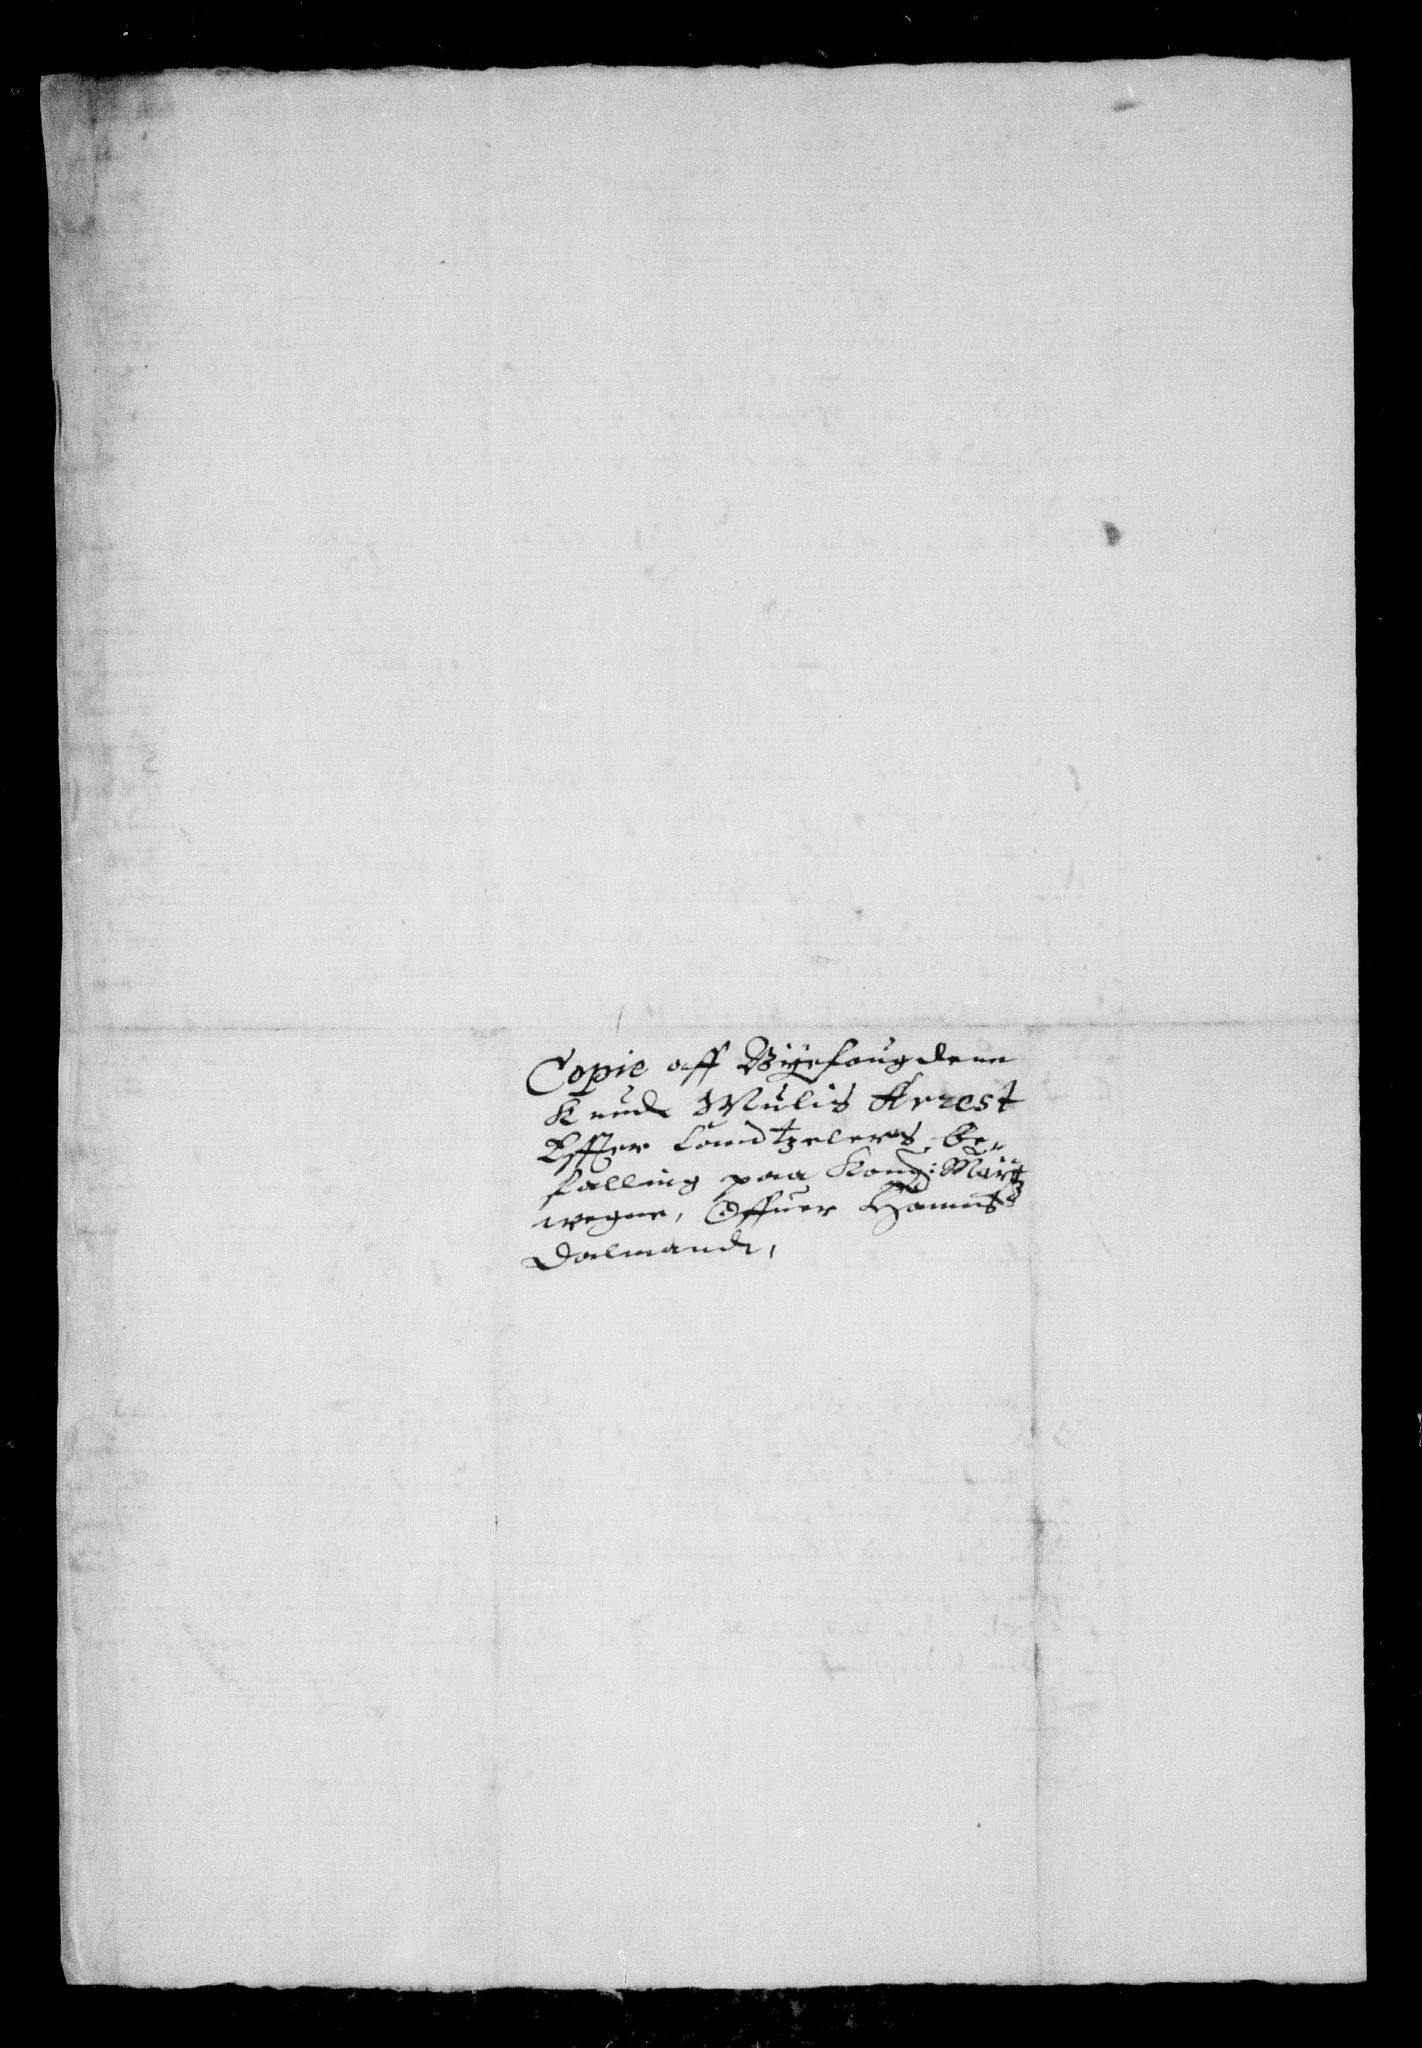 Copie aff Byefougdenn
Knud Mulis Arrest
Effter Candtzelers be-
falling paa Kong: Maytz
wegne, Offuer Hannis
Dalmand,